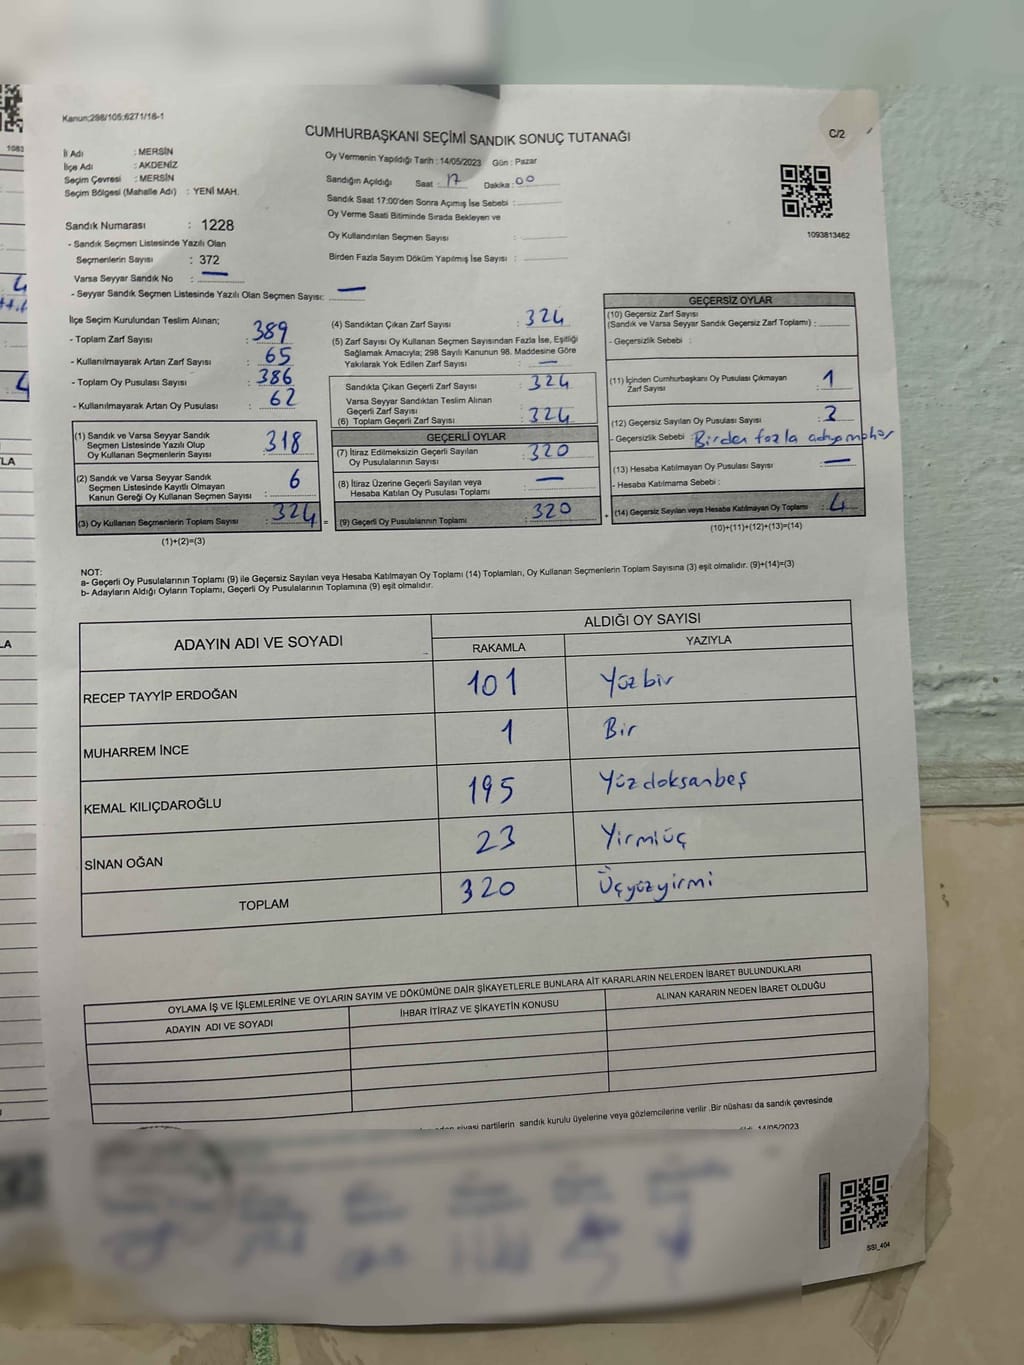 Kanun:298/105;6271/16-1
CUMHURBAŞKANI SEÇİMİ SANDIK SONUÇ TUTANAĞI
C/2
İl Adı : MERSİN
İlçe Adı : AKDENİZ
Seçim Çevresi : MERSİN
Seçim Bölgesi (Mahalle Adı) : YENİ MAH.
Sandık Numarası : 1228
- Sandık Seçmen Listesinde Yazılı Olan
Seçmenlerin Sayısı : 372
Varsa Seyyar Sandık No : —
- Seyyar Sandık Seçmen Listesinde Yazılı Olan Seçmen Sayısı: —
Oy Vermenin Yapıldığı Tarih : 14/05/2023 Gün : Pazar
Sandığın Açıldığı Saat : 17 Dakika : 00
Sandık Saat 17:00'den Sonra Açımış İse Sebebi :
Oy Verme Saati Bitiminde Sırada Bekleyen ve
Oy Kullandırılan Seçmen Sayısı :
Birden Fazla Sayım Döküm Yapılmış İse Sayısı :
1093813462
İlçe Seçim Kurulundan Teslim Alınan;
- Toplam Zarf Sayısı : 389
- Kullanılmayarak Artan Zarf Sayısı : 65
- Toplam Oy Pusulası Sayısı : 386
- Kullanılmayarak Artan Oy Pusulası : 62
(1) Sandık ve Varsa Seyyar Sandık
Seçmen Listesinde Yazılı Olup
Oy Kullanan Seçmenlerin Sayısı : 318
(2) Sandık ve Varsa Seyyar Sandık
Seçmen Listesinde Kayıtlı Olmayan
Kanun Gereği Oy Kullanan Seçmen Sayısı : 6
(3) Oy Kullanan Seçmenlerin Toplam Sayısı : 324 =
(1)+(2)=(3)
(4) Sandıktan Çıkan Zarf Sayısı : 324
(5) Zarf Sayısı Oy Kullanan Seçmen Sayısından Fazla İse, Eşitliği
Sağlamak Amacıyla; 298 Sayılı Kanunun 98. Maddesine Göre
Yakılarak Yok Edilen Zarf Sayısı : —
Sandıkta Çıkan Geçerli Zarf Sayısı : 324
Varsa Seyyar Sandıktan Teslim Alınan
Geçerli Zarf Sayısı :
(6) Toplam Geçerli Zarf Sayısı : 324
GEÇERLİ OYLAR
(7) İtiraz Edilmeksizin Geçerli Sayılan
Oy Pusulalarının Sayısı : 320
(8) İtiraz Üzerine Geçerli Sayılan veya
Hesaba Katılan Oy Pusulası Toplamı : —
(9) Geçerli Oy Pusulalarının Toplamı : 320 +
GEÇERSİZ OYLAR
(10) Geçersiz Zarf Sayısı
(Sandık ve Varsa Seyyar Sandık Geçersiz Zarf Toplamı) :
- Geçersizlik Sebebi :
(11) İçinden Cumhurbaşkanı Oy Pusulası Çıkmayan
Zarf Sayısı : 1
(12) Geçersiz Sayılan Oy Pusulası Sayısı : 3
- Geçersizlik Sebebi : Birden fazla adaya mühür
(13) Hesaba Katılmayan Oy Pusulası Sayısı : —
- Hesaba Katılmama Sebebi :
(14) Geçersiz Sayılan veya Hesaba Katılmayan Oy Toplamı : 4
(10)+(11)+(12)+(13)=(14)
NOT:
a- Geçerli Oy Pusulalarının Toplamı (9) ile Geçersiz Sayılan veya Hesaba Katılmayan Oy Toplamı (14) Toplamları, Oy Kullanan Seçmenlerin Toplam Sayısına (3) eşit olmalıdır. (9)+(14)=(3)
b- Adayların Aldığı Oyların Toplamı, Geçerli Oy Pusulalarının Toplamına (9) eşit olmalıdır.
ADAYIN ADI VE SOYADI
ALDIĞI OY SAYISI
RAKAMLA YAZIYLA
RECEP TAYYİP ERDOĞAN 101 Yüzbir
MUHARREM İNCE 1 Bir
KEMAL KILIÇDAROĞLU 195 Yüzdoksanbeş
SİNAN OĞAN 23 Yirmiüç
TOPLAM 320 Üçyüzyirmi
OYLAMA İŞ VE İŞLEMLERİNE VE OYLARIN SAYIM VE DÖKÜMÜNE DAİR ŞİKAYETLERLE BUNLARA AİT KARARLARIN NELERDEN İBARET BULUNDUKLARI
ADAYIN ADI VE SOYADI İHBAR İTİRAZ VE ŞİKAYETİN KONUSU ALINAN KARARIN NEDEN İBARET OLDUĞU
siyasi partilerin sandık kurulu üyelerine veya gözlemcilerine verilir .Bir nüshası da sandık çevresinde
14/05/2023
SSI_404